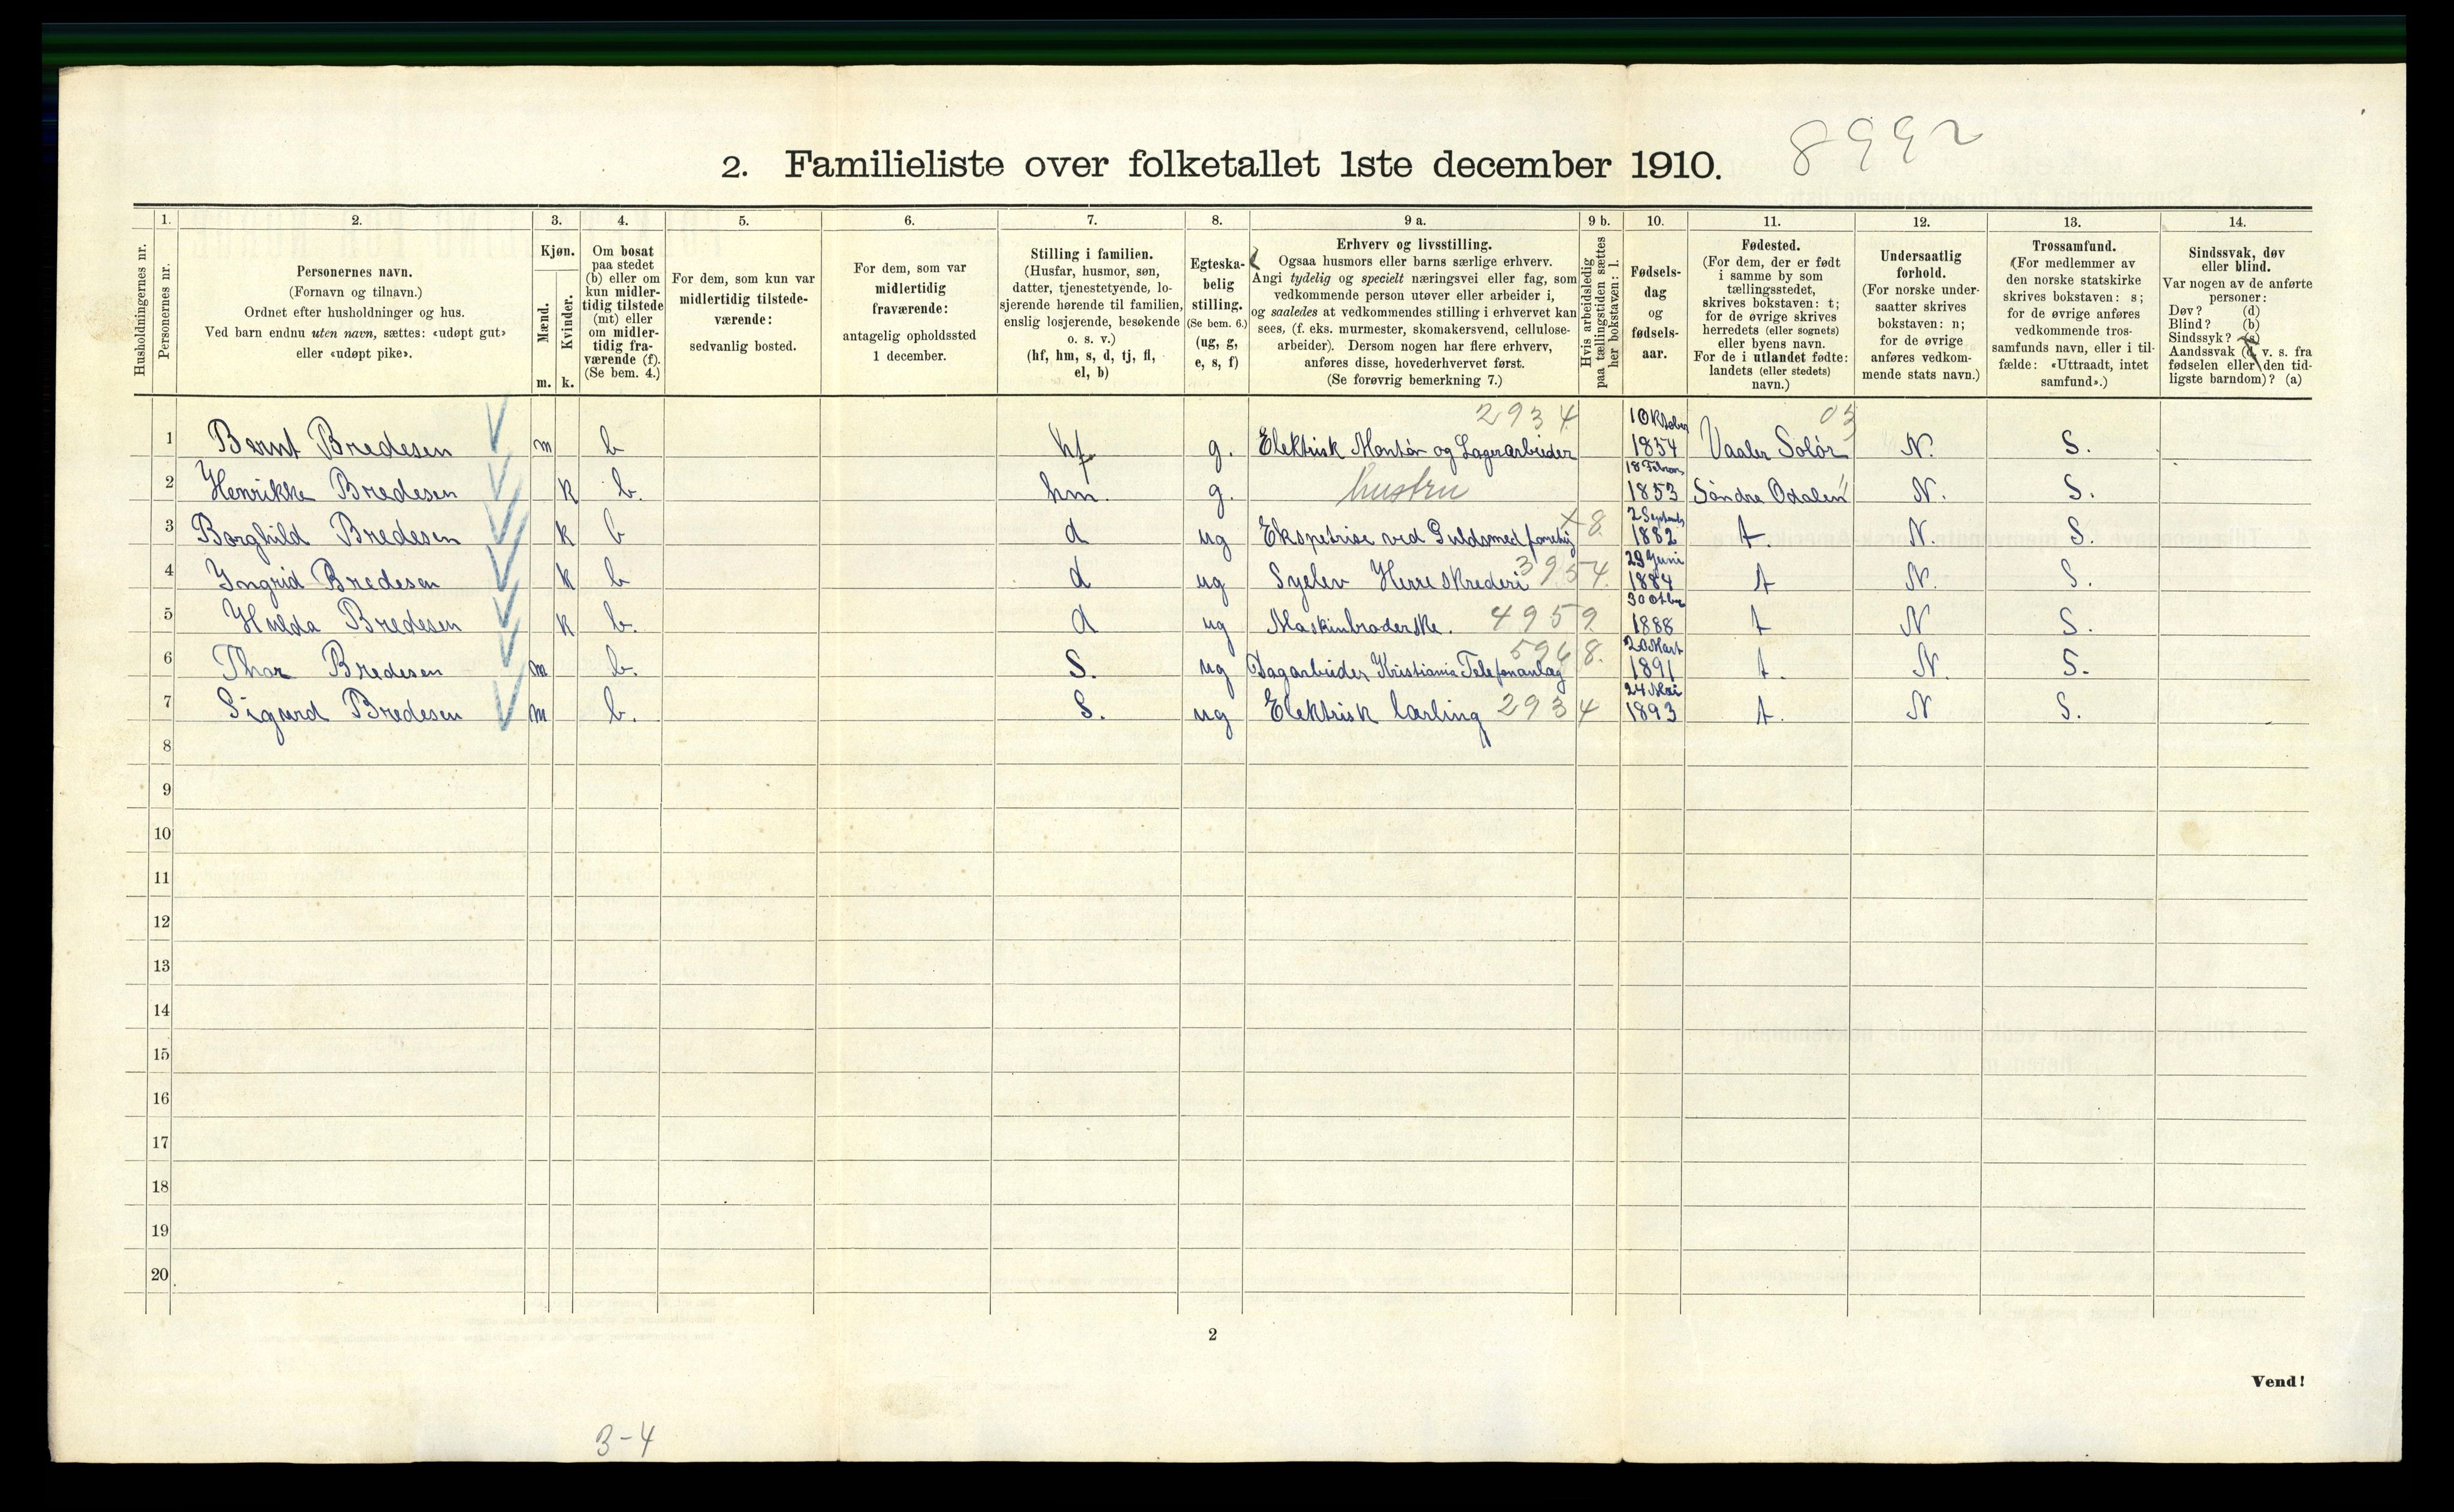 8992
2. Familieliste over folketallet 1ste december 1910.
1. 2. 3. 4. 5. 6. 7. 8. 9 a. 9 b. 10. 11. 12. 13. 14.
Husholdningernes nr.
Personernes nr.
Personernes navn.
(Fornavn og tilnavn.)
Ordnet efter husholdninger og hus.
Ved barn endnu uten navn, sættes: «udøpt gut»
eller «udøpt pike».
Kjøn.
Mænd.
m.
Kvinder.
k.
Om bosat
paa stedet
(b) eller om
kun midler-
tidig tilstede
(mt) eller
om midler-
tidig fra-
værende (f).
(Se bem. 4.)
For dem, som kun var
midlertidig tilstede-
værende:
sedvanlig bosted.
For dem, som var
midlertidig
fraværende:
antagelig opholdssted
1 december.
Stilling i familien.
(Husfar, husmor, søn,
datter, tjenestetyende, lo-
sjerende hørende til familien,
enslig losjerende, besøkende
o. s. v.)
(hf, hm, s, d, tj, fl,
el, b)
Egteska-
belig
stilling.
(Se bem. 6.)
(ug, g,
e, s, f)
Erhverv og livsstilling.
Ogsaa husmors eller barns særlige erhverv.
Angi tydelig og specielt næringsvei eller fag, som
vedkommende person utøver eller arbeider i,
og saaledes at vedkommendes stilling i erhvervet kan
sees, (f. eks. murmester, skomakersvend, cellulose-
arbeider). Dersom nogen har flere erhverv,
anføres disse, hovederhvervet først.
(Se forøvrig bemerkning 7.)
Hvis arbeidsledig
paa tællingstiden sættes
her bokstaven: l.
Fødsels-
dag
og
fødsels-
aar.
Fødested.
(For dem, der er født
i samme by som
tællingsstedet,
skrives bokstaven: t;
for de øvrige skrives
herredets (eller sognets)
eller byens navn.
For de i utlandet fødte:
landets (eller stedets)
navn.)
Undersaatlig
forhold.
(For norske under-
saatter skrives
bokstaven: n;
for de øvrige
anføres vedkom-
mende stats navn.)
Trossamfund.
(For medlemmer av
den norske statskirke
skrives bokstaven: s;
for de øvrige anføres
vedkommende tros-
samfunds navn, eller i til-
fælde: «Uttraadt, intet
samfund».)
Sindssvak, døv
eller blind.
Var nogen av de anførte
personer:
Døv? (d)
Blind? (b)
Sindssyk? (s)
Aandssvak (d. v. s. fra
fødselen eller den tid-
ligste barndom)? (a)
2934 10 Oktober 03
1 Bernt Bredesen m b hf g. Elektrisk Montør og Lagerarbeider 1854 Vaaler Solør N. S.
2 Henrikke Bredesen k b. hm. g. hustru 18 1853 Søndre Odalen N. S.
3 Borghild Bredesen k b d ug Ekspetrise ved Guldsmed 8. 2 1882 t. N. S.
4 Yngrid Bredesen k b d ug Syelev Herreskrederi 3954. 29 Juni 1884 t N. S.
5 Hulda Bredesen k b. d ug Maskinbroderske. 4959 30 1888 t N S.
6 Thor Bredesen m b. S. ug Dagarbeider Kristiania Telefonanlæg 8. 20 Mart 1891 t. N. S.
7 Sigurd Bredesen m b. S. ug Elektrisk lærling 2934 24 Mai 1893 t. N S.
8
9
10
11
12
13
14
15
16
17
18
19
20
2
Vend!
3-4